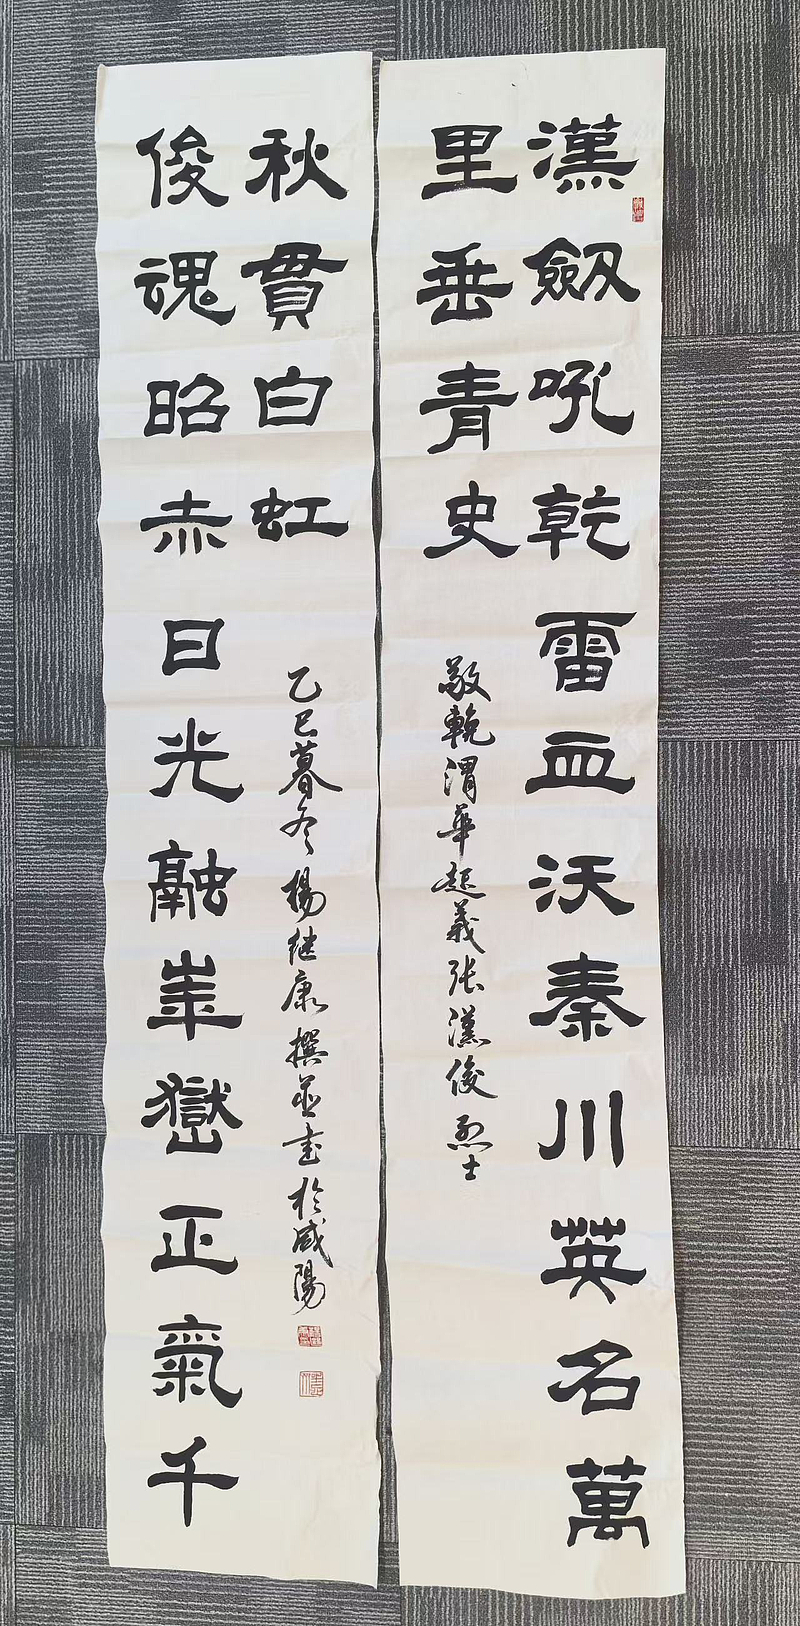 漢劒吼乾雷血沃秦川英名萬
里垂青史
敬輓渭華起義张漢俊烈士
俊魂昭赤日光融崋嶽正氣千
秋貫白虹
乙巳暮冬楊继康撰並书於咸陽